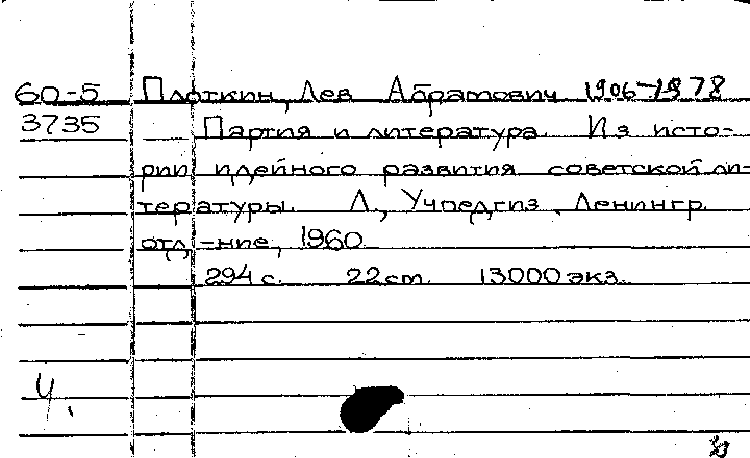 60-5 Плоткин, Лев Абрамович 1906-1978
3735 Партия и литература. Из исто-
рии идейного развития советской ли-
тературы. Л., Учпедгиз, Ленингр.
отд-ние, 1960.
294 с. 22 см. 13000 экз.
Ч.